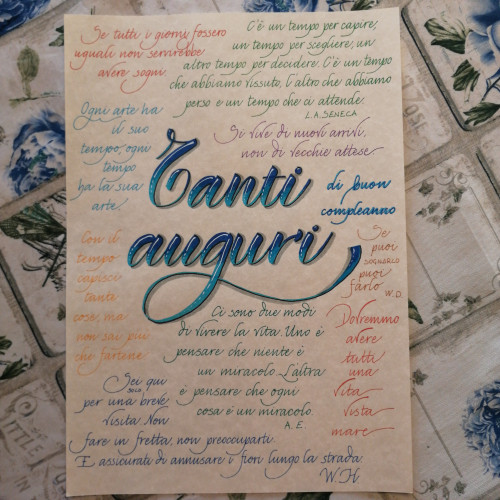 Se tutti i giorni fossero
uguali non servirebbe
avere sogni.
C'è un tempo per capire,
un tempo per scegliere, un
altro tempo per decidere. C'è un tempo
che abbiamo vissuto, l'altro che abbiamo
perso e un tempo che ci attende.
L.A. SENECA
Ogni arte ha
il suo
tempo, ogni
tempo
ha la sua
arte.
Si vive di nuovi arrivi,
non di vecchie attese
Tanti
auguri
di buon
compleanno
Se
puoi
SOGNARLO
puoi
farlo
W.D.
Con il
tempo
capisci
tante
cose, ma
non sai più
che fartene
Ci sono due modi
di vivere la vita. Uno è
pensare che niente è
un miracolo. L'altra
è pensare che ogni
cosa è un miracolo.
A. E.
Dovremmo
avere
tutti
una
vita
vista
mare
Sei qui
solo
per una breve
visita. Non
fare in fretta, non preoccuparti.
E assicurati di annusare i fiori lungo la strada
W.H.